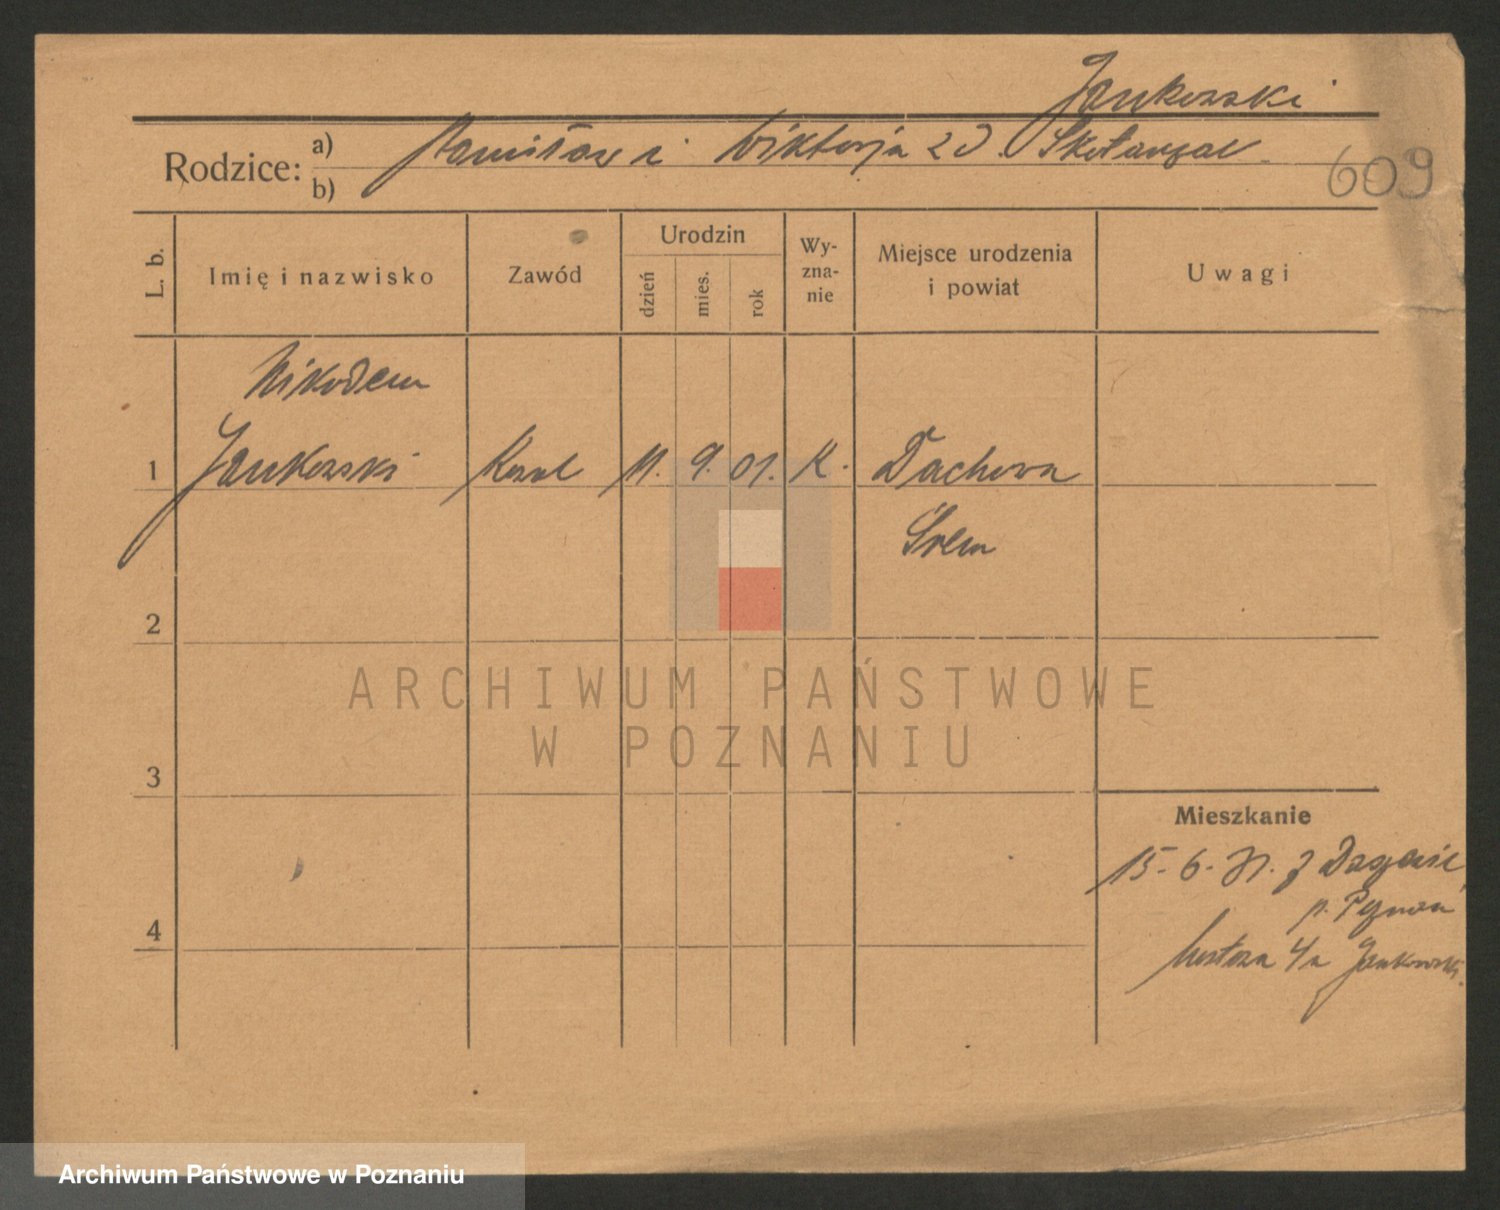 Jankowski
Rodzice: a) Stanisław i Wiktorja z d.
b)
609
L. b.
Imię i nazwisko
Zawód
Urodzin
dzień
mies.
rok
Wy-
zna-
nie
Miejsce urodzenia
i powiat
Uwagi
Nikodem
1 Jankowski Kowal 11. 9. 01. K. Dachowa
Śrem
2
3
4
Mieszkanie
15-6-31. z
p.
4a Jankowski.
ARCHIWUM PAŃSTWOWE
W POZNANIU
Archiwum Państwowe w Poznaniu